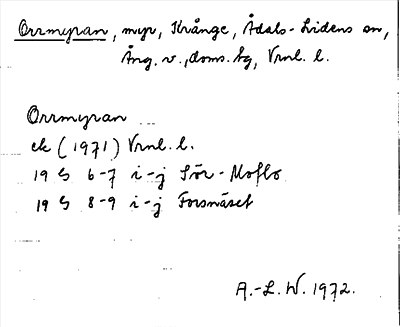 Orrmyran, myr, Krånge, Ådals-Lidens sn,
Ång. v., doms. hg, Vrnl. l.
Orrmyran
ek (1971) Vrnl. l.
19 G 6-7 i-j Sör-Moflo
19 G 8-9 i-j Forsnäset
A.-L. W. 1972.